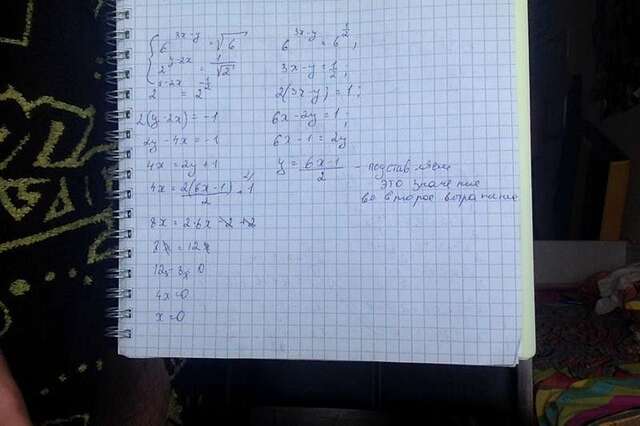 { 6^(3x-y) = √6
2^(y-2x) = 1/√2
2^(y-2x) = 2^(-1/2)
2(y-2x) = -1
2y-4x = -1
4x = 2y+1
4x = 2(6x-1)/2 + 1
8x = 2·6x - 2 + 2
8x = 12x
12x-8x=0
4x=0
x=0
6^(3x-y) = 6^(1/2);
3x-y = 1/2;
2(3x-y) = 1;
6x-2y = 1;
6x-1 = 2y
y = (6x-1)/2 - подставляем
это значение
во второе выражение